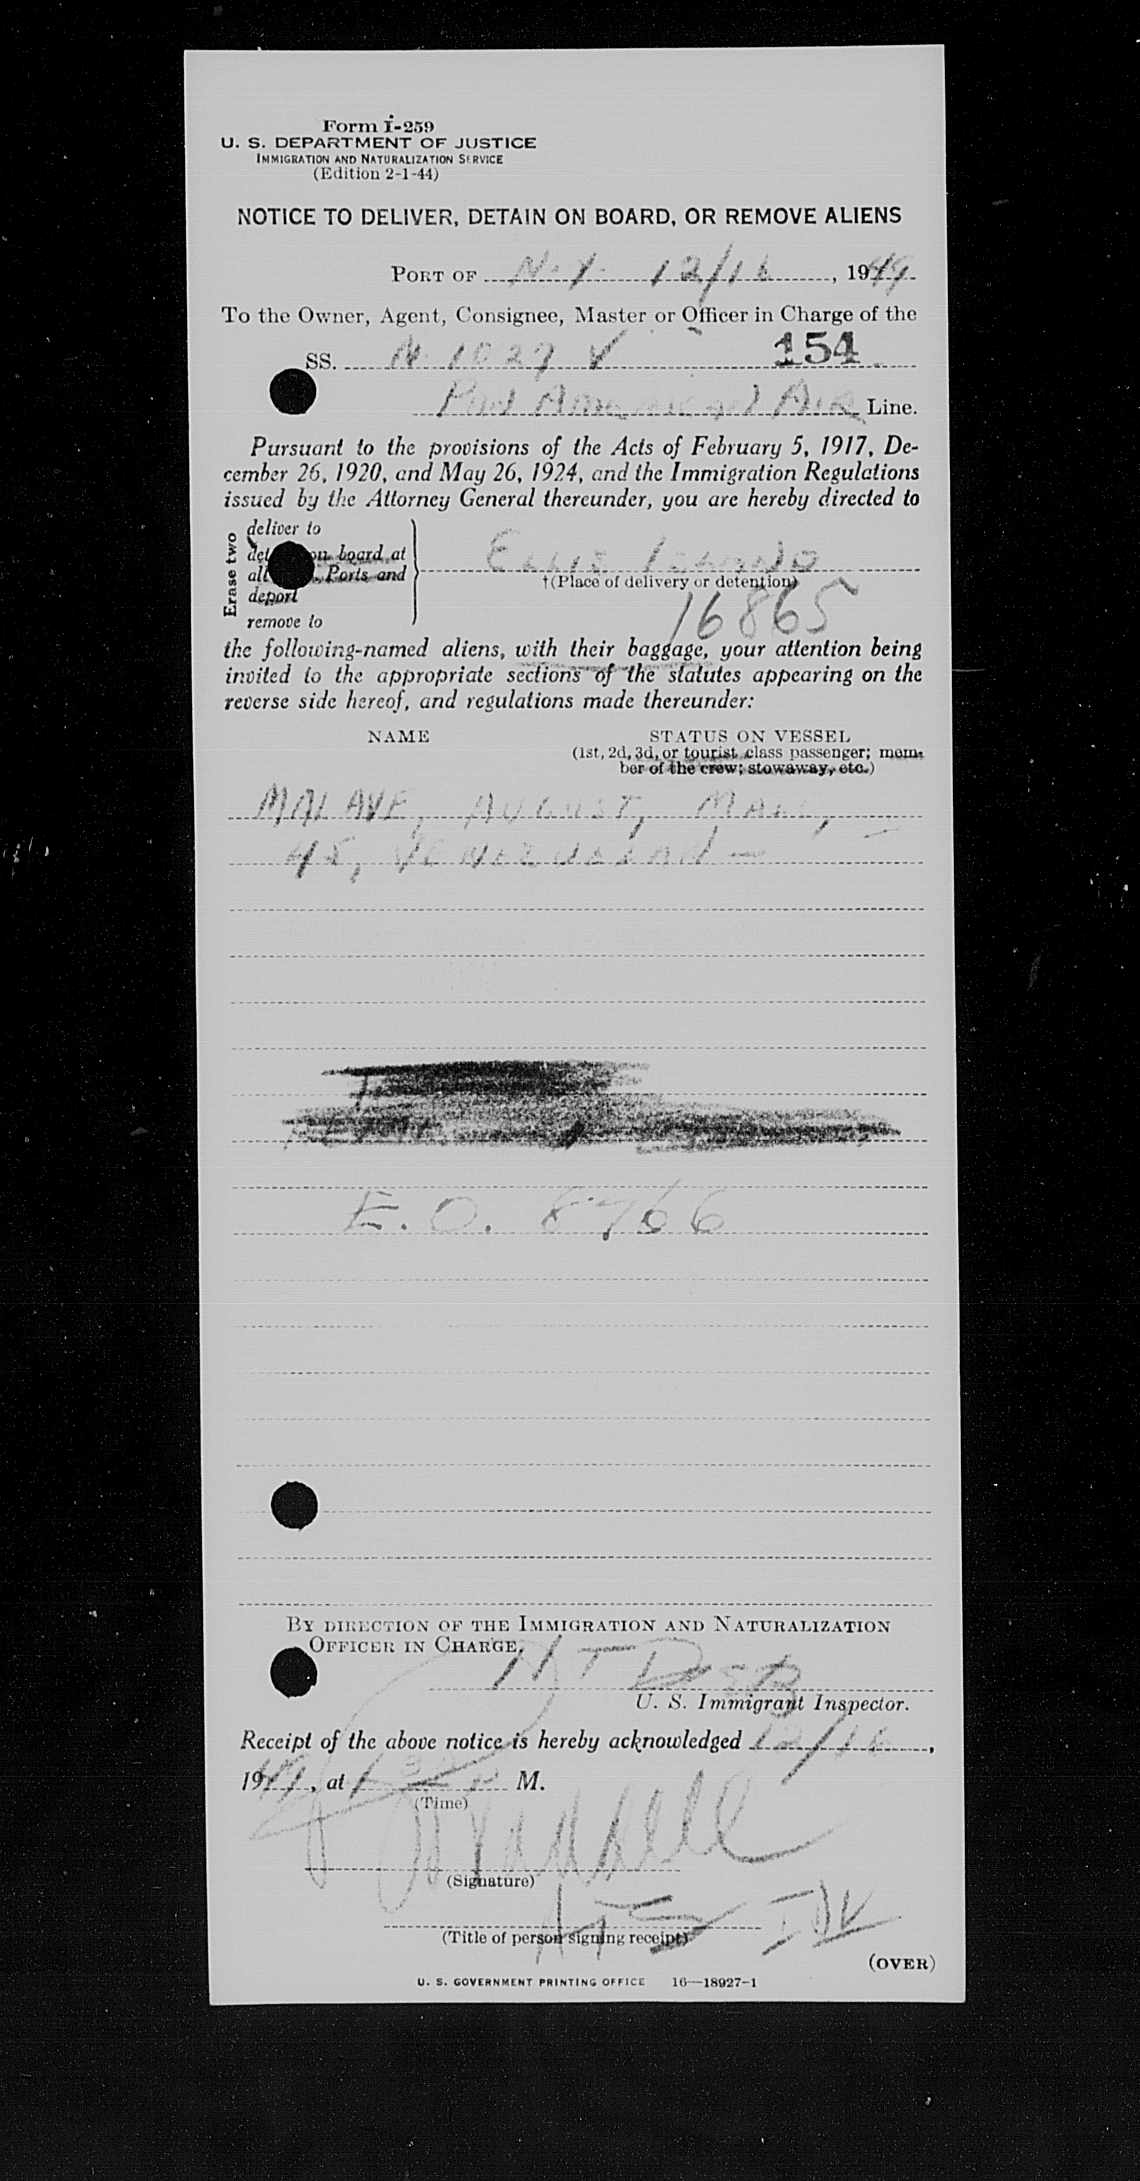 Form I-259
U. S. DEPARTMENT OF JUSTICE
IMMIGRATION AND NATURALIZATION SERVICE
(Edition 2-1-44)
NOTICE TO DELIVER, DETAIN ON BOARD, OR REMOVE ALIENS
PORT OF N.Y. 12/16, 1949
To the Owner, Agent, Consignee, Master or Officer in Charge of the
SS. N 1027 V 154
Pan American Air Line.
Pursuant to the provisions of the Acts of February 5, 1917, De-
cember 26, 1920, and May 26, 1924, and the Immigration Regulations
issued by the Attorney General thereunder, you are hereby directed to
Erase two
deliver to
on board at
Ports and
deport
remove to
ELLIS ISLAND
†(Place of delivery or detention)
16865
the following-named aliens, with their baggage, your attention being
invited to the appropriate sections of the statutes appearing on the
reverse side hereof, and regulations made thereunder:
NAME STATUS ON VESSEL
(1st, 2d, 3d, or tourist class passenger; mem-
ber of the crew; stowaway, etc.)
MALAVE, AUGUST, MALE,
45, VENEZUELAN —
E. O. 8766
BY DIRECTION OF THE IMMIGRATION AND NATURALIZATION
OFFICER IN CHARGE,
U. S. Immigrant Inspector.
Receipt of the above notice is hereby acknowledged 12/16,
1949, at 1 30 P M.
(Time)
(Signature)
(Title of person signing receipt)
(OVER)
U. S. GOVERNMENT PRINTING OFFICE 16—18927-1